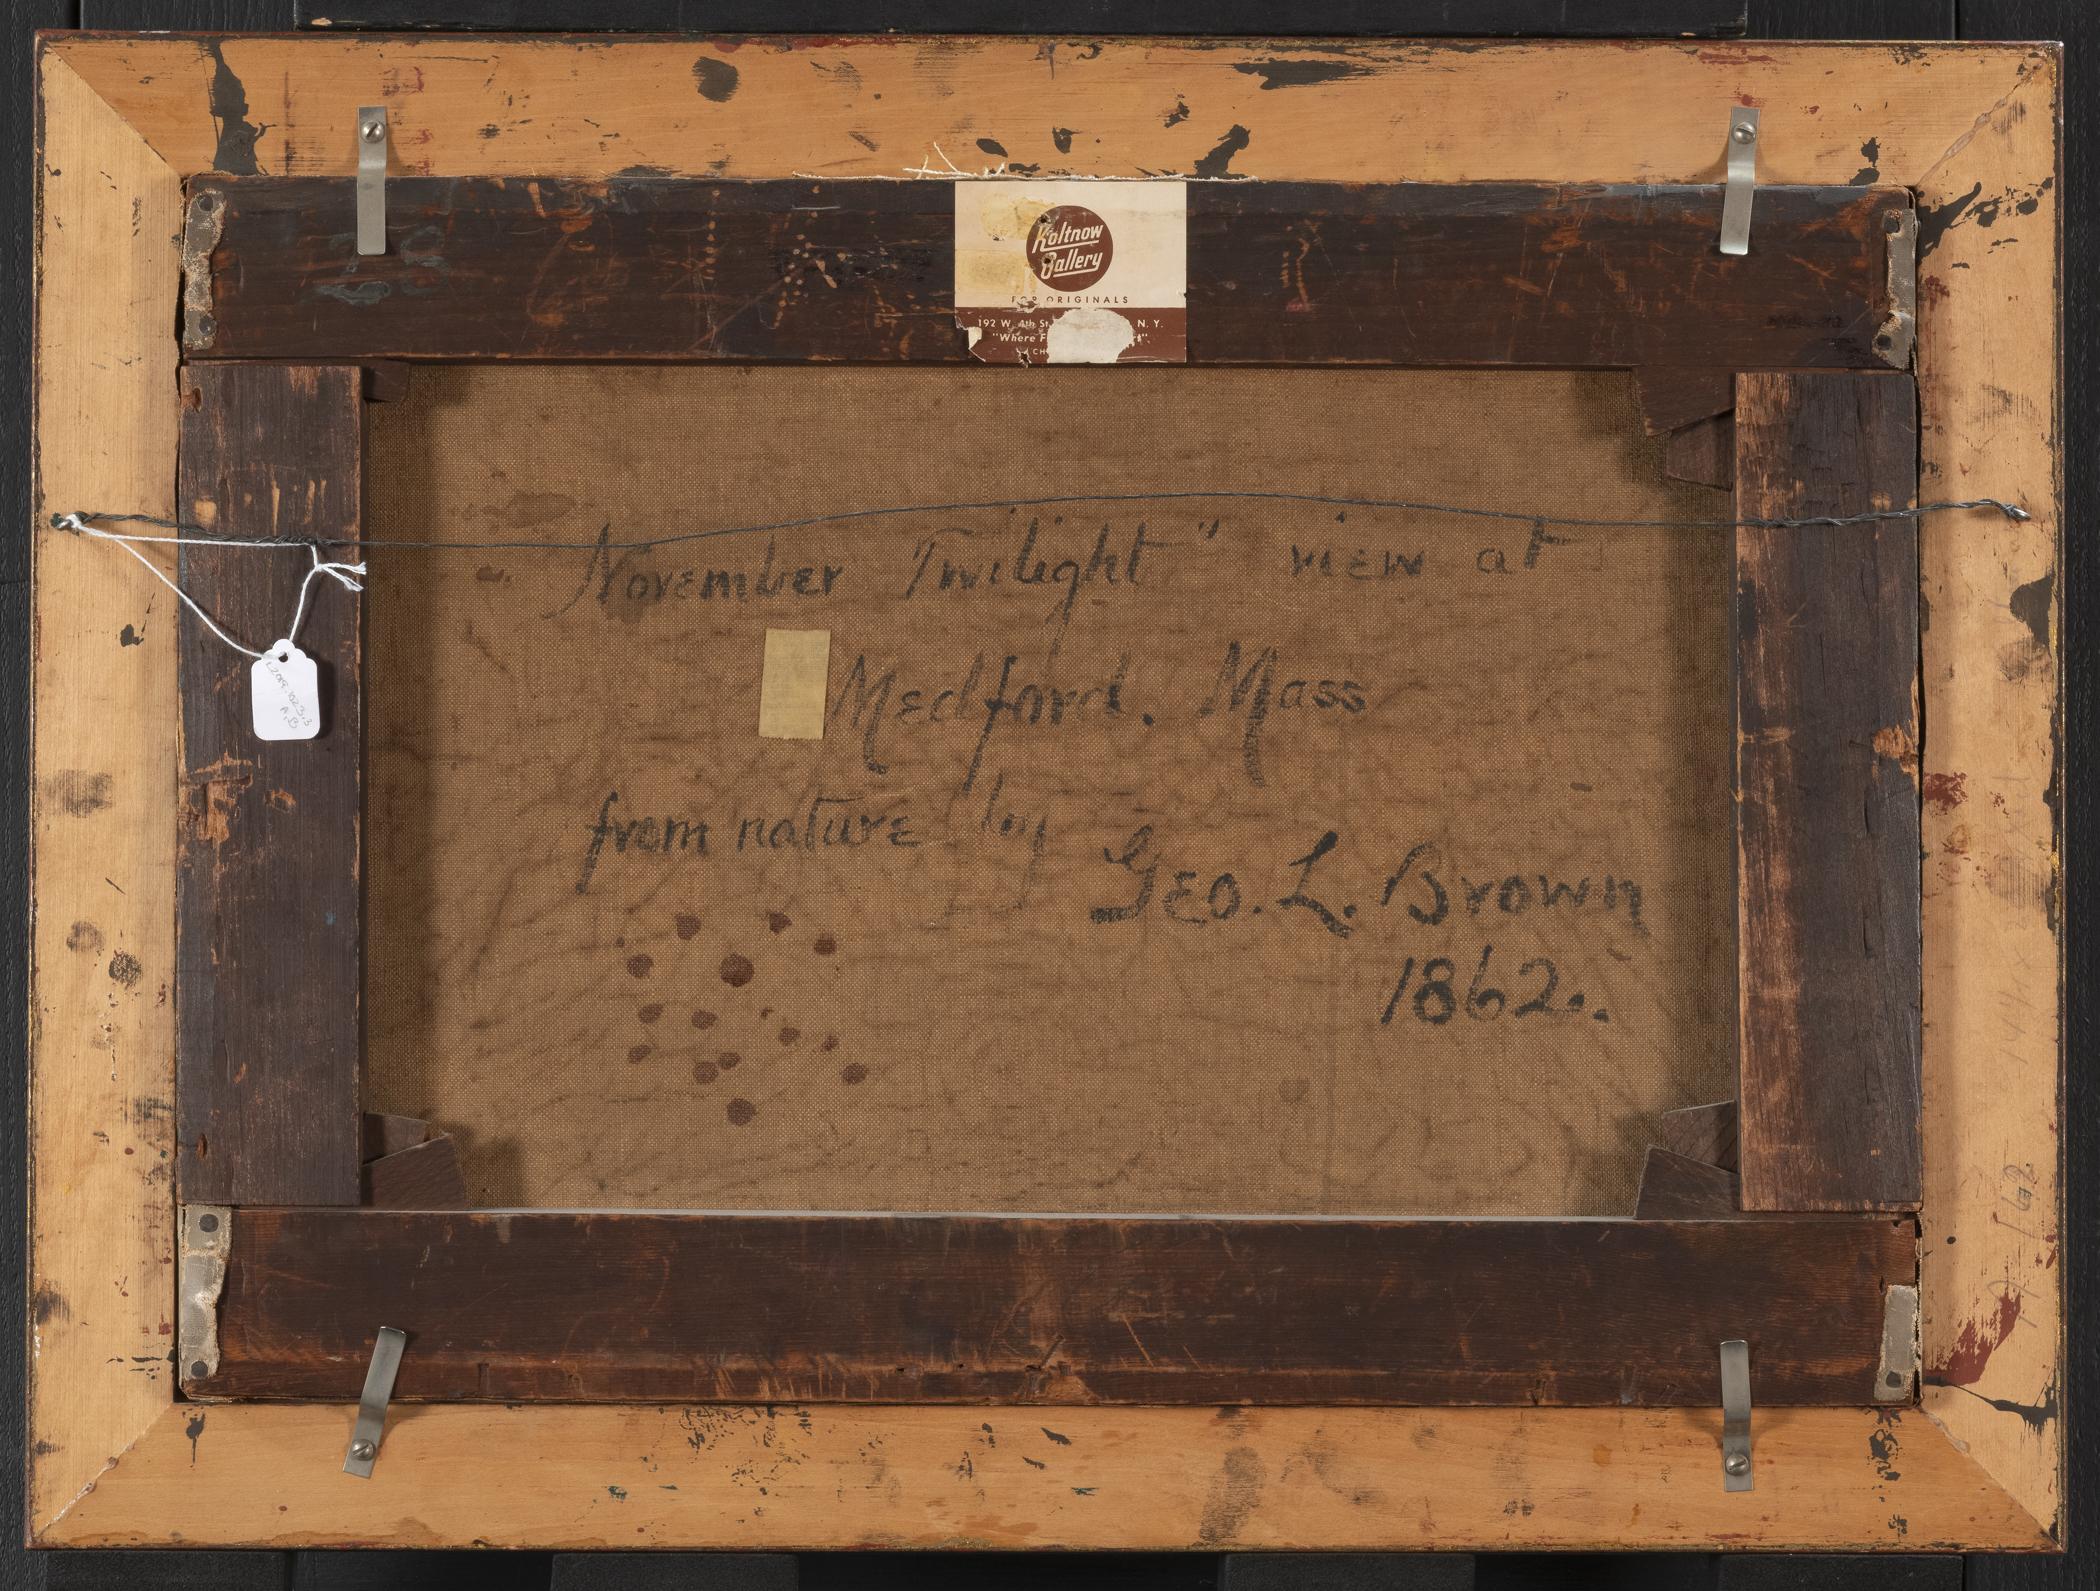 Koltnow
Gallery
FOR ORIGINALS
192 W. 4th St. N. Y.
"Where
November Twilight" view at
Medford. Mass
from nature by
Geo. L. Brown
1862.
L2019.102.3.3
A,B